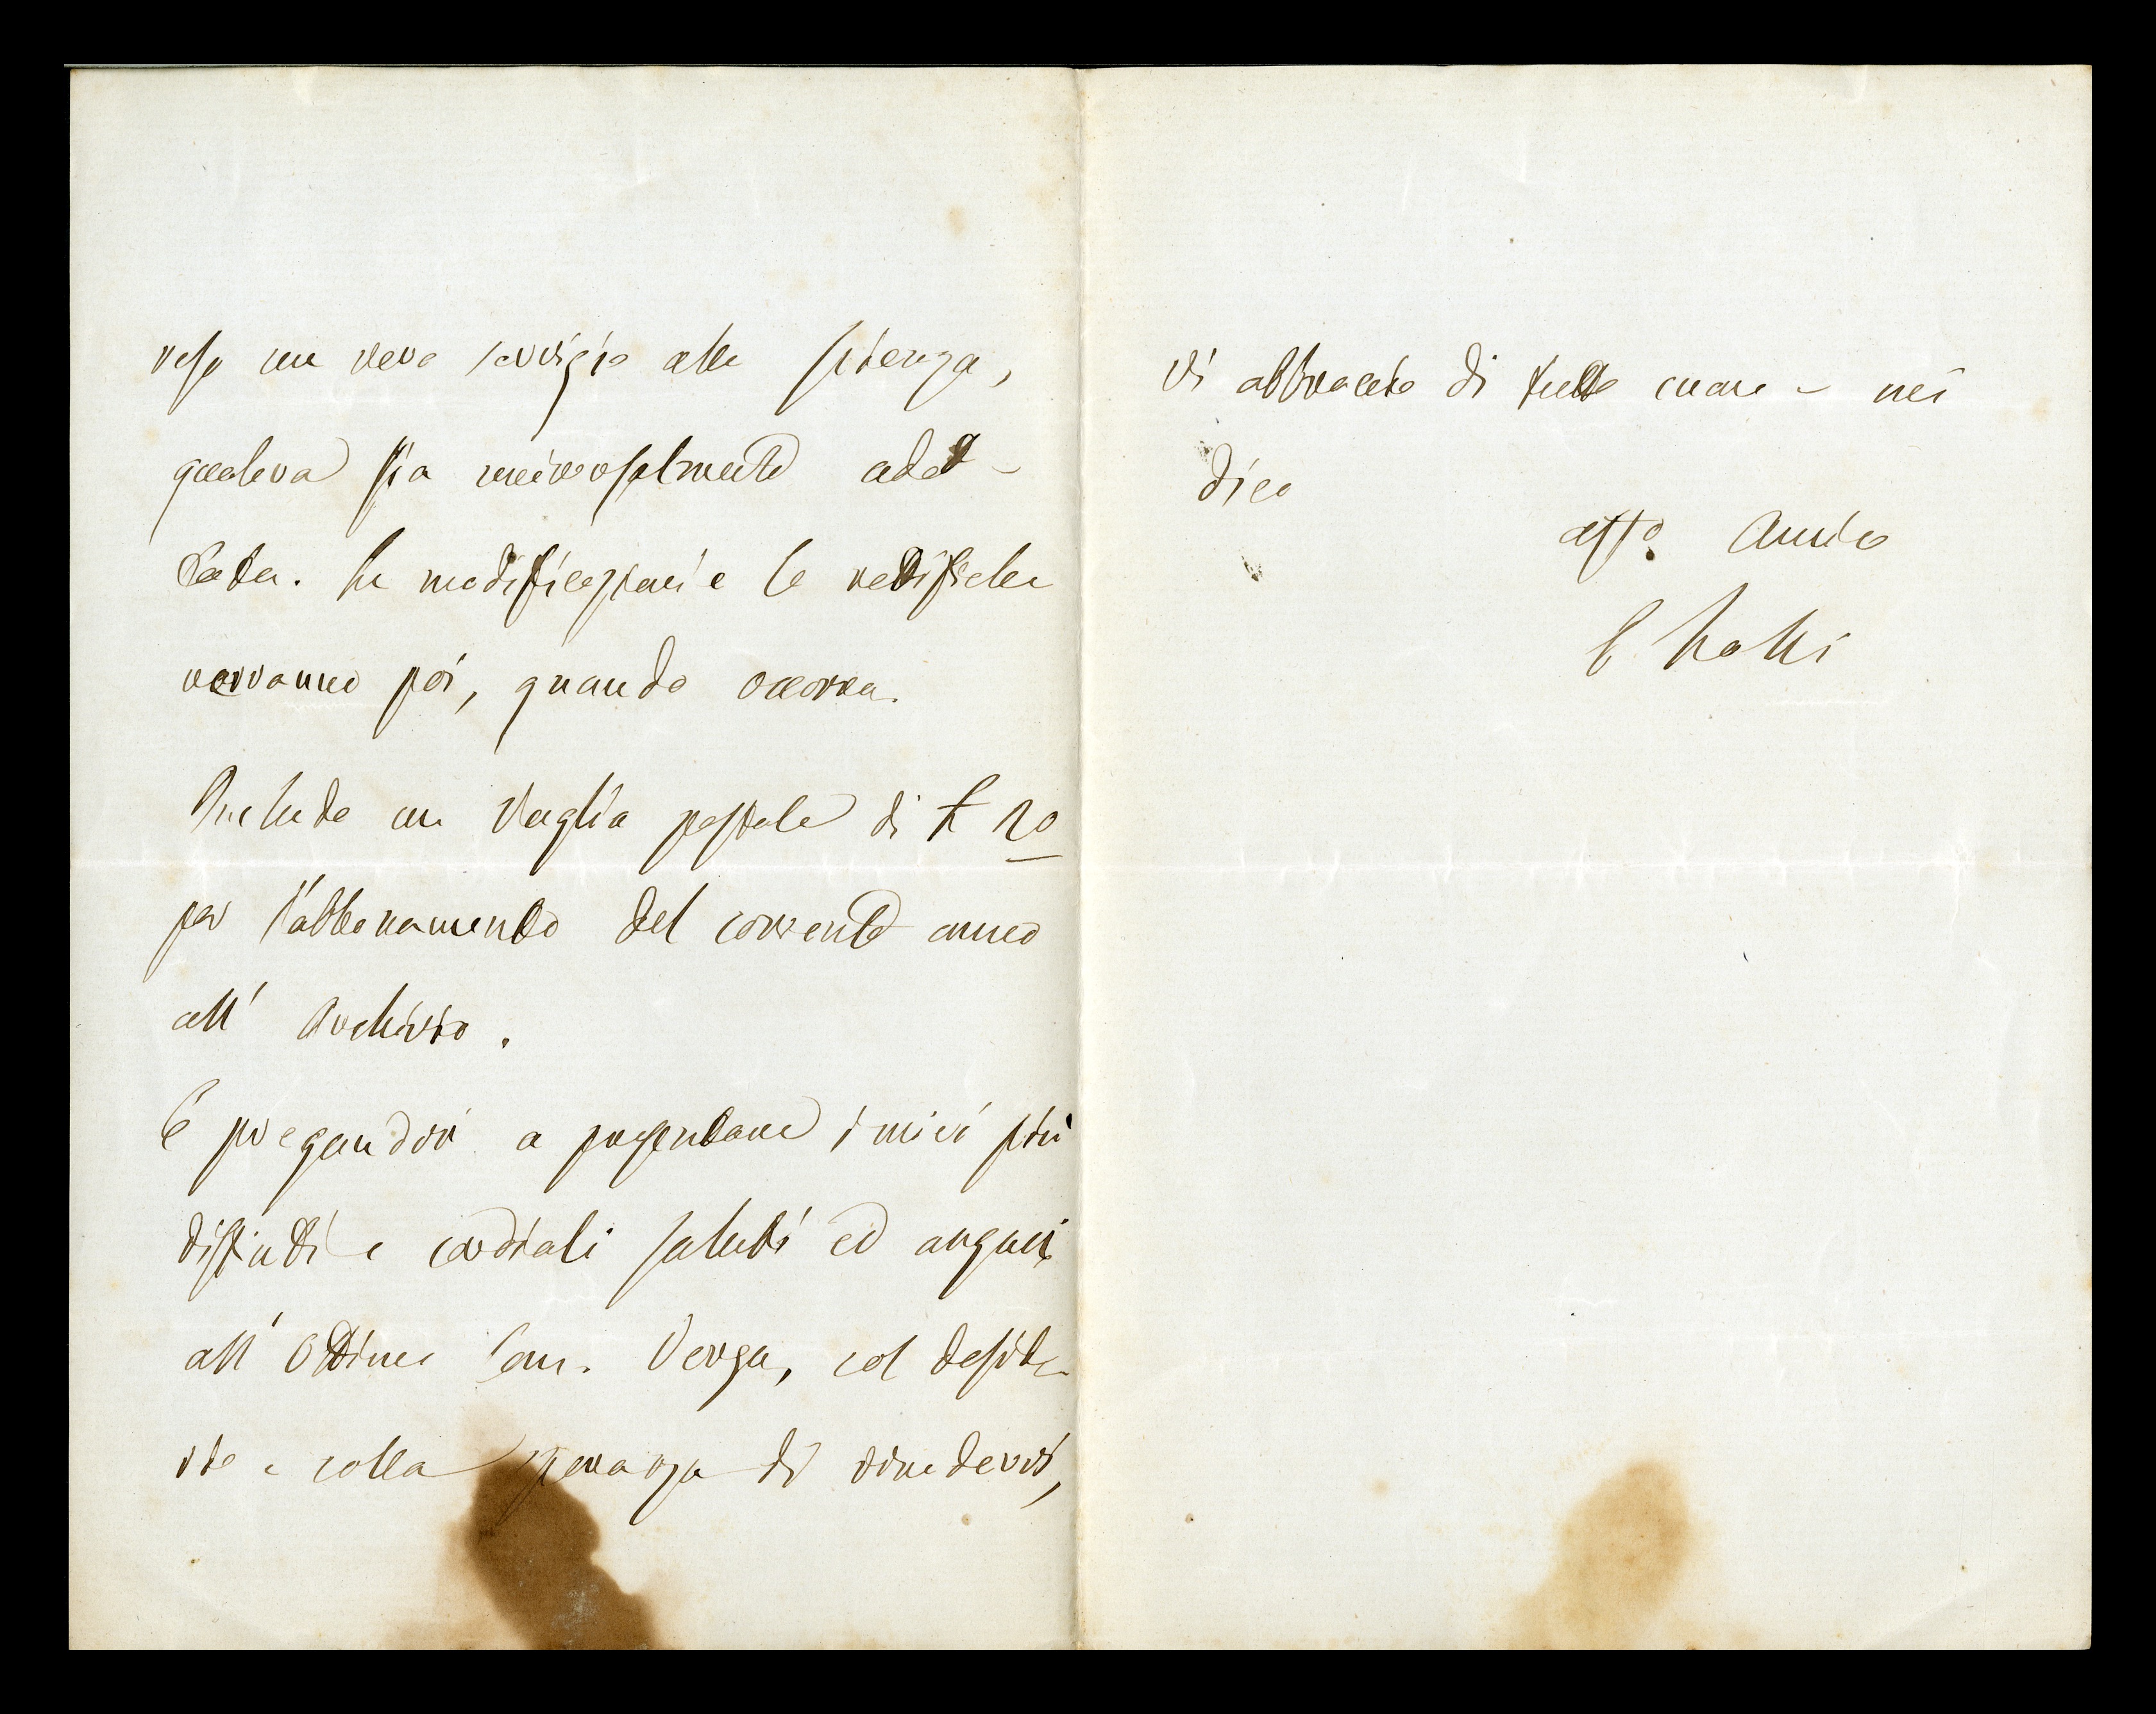 reso un vero servigio alla scienza,
qualora sia universalmente adot-
tata. Le modificazioni e le rettifiche
verranno poi, quando occorra.
Includo un Vaglia postale di £ 20
per l'abbonamento del corrente anno
all' Archivio.
E pregandovi a presentare i miei più
distinti e cordiali saluti ed auguri
all' Ottimo Com. Verga, col deside-
rio e colla speranza di rivedervi,
Vi abbraccio di tutto cuore - mi
dico
affo. Amico